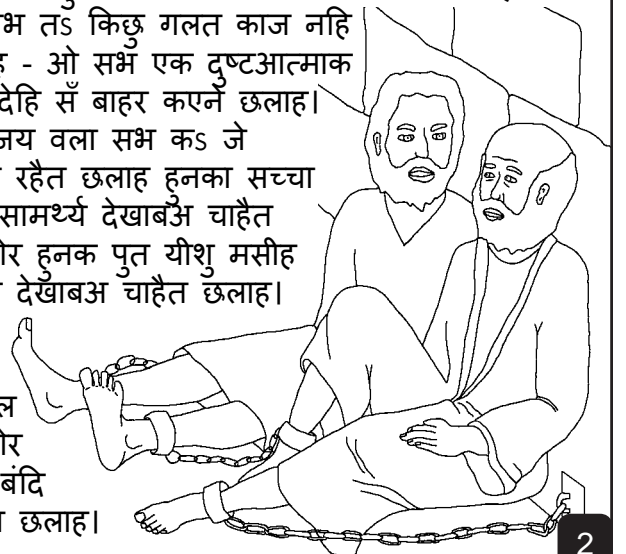 भ तऽ किछु गलत काज नहि
- ओ सभ एक दुष्टआत्माक
देहि सँ बाहर कएने छलाह।
जय वला सभ कऽ जे
रहैत छलाह हुनका सच्चा
सामर्थ्य देखाबअ चाहैत
हुनक पुत यीशु मसीह
देखाबअ चाहैत छलाह।
बंदि
छलाह।
2